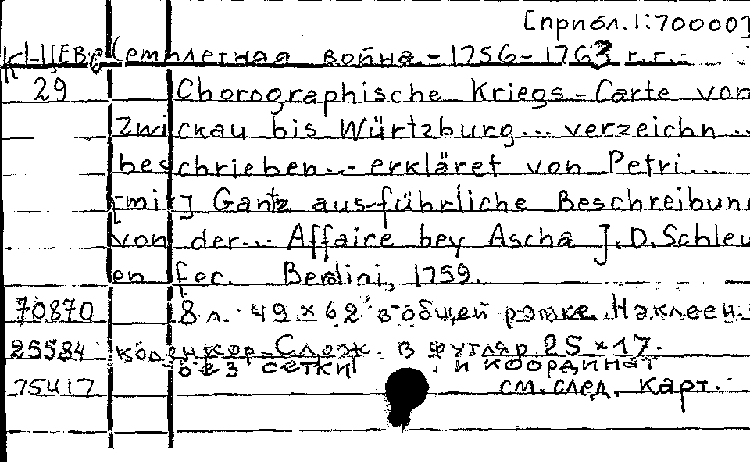 [прибл. 1:70000]
К1-ЦЕВр Семилетняя война - 1756-1763 г.г.
29 Chorographische Kriegs-Carte von
Zwickau bis Würtzburg... verzeichn...
beschrieben... erkläret von Petri...
[mit] Gantz ausführliche Beschreibun
von der... Affaire bey Ascha J.D. Schleu
en fec. Berolini, 1759.
70870 8 л. 49 × 62 в общей рамке. Наклеен.
25584 коленкор. Слож. в футляр 25 × 17.
без сетки и координат
75417 см. след. карт.